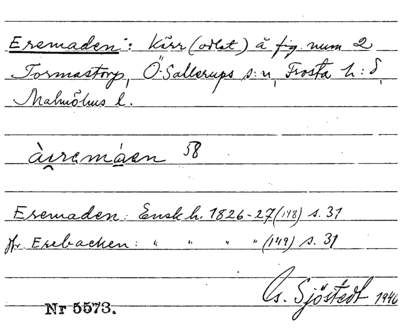 Eremaden: Kärr (odlat) å fig. num 2
Tormastorp, Ö. Sallerups s:n, Frosta h:d,
Malmöhus l.
àiremáen 58
Eremaden: Ensk. h. 1826-27 (148) s. 31
jfr Erebacken: " " " " (149) s. 31
Gs. Sjöstedt 1946
Nr 5573.